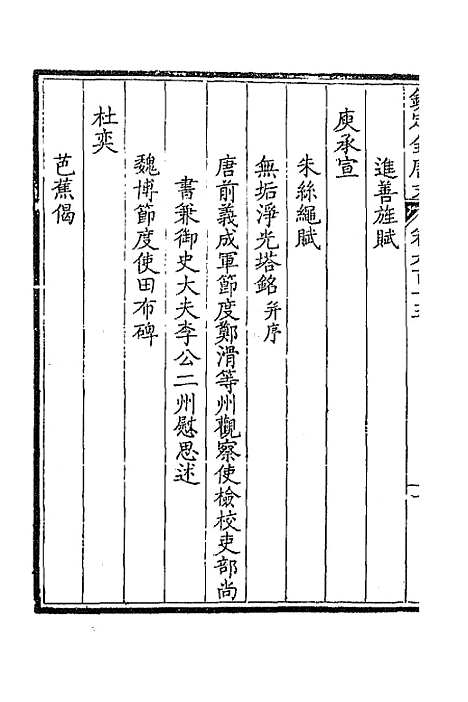 欽定全唐文 卷六百十五
進善旌賦
庾承宣
朱絲繩賦
無垢淨光塔銘并序
唐前義成軍節度鄭滑等州觀察使檢校吏部尚
書兼御史大夫李公二州慰思述
魏博節度使田布碑
杜奕
芭蕉偈